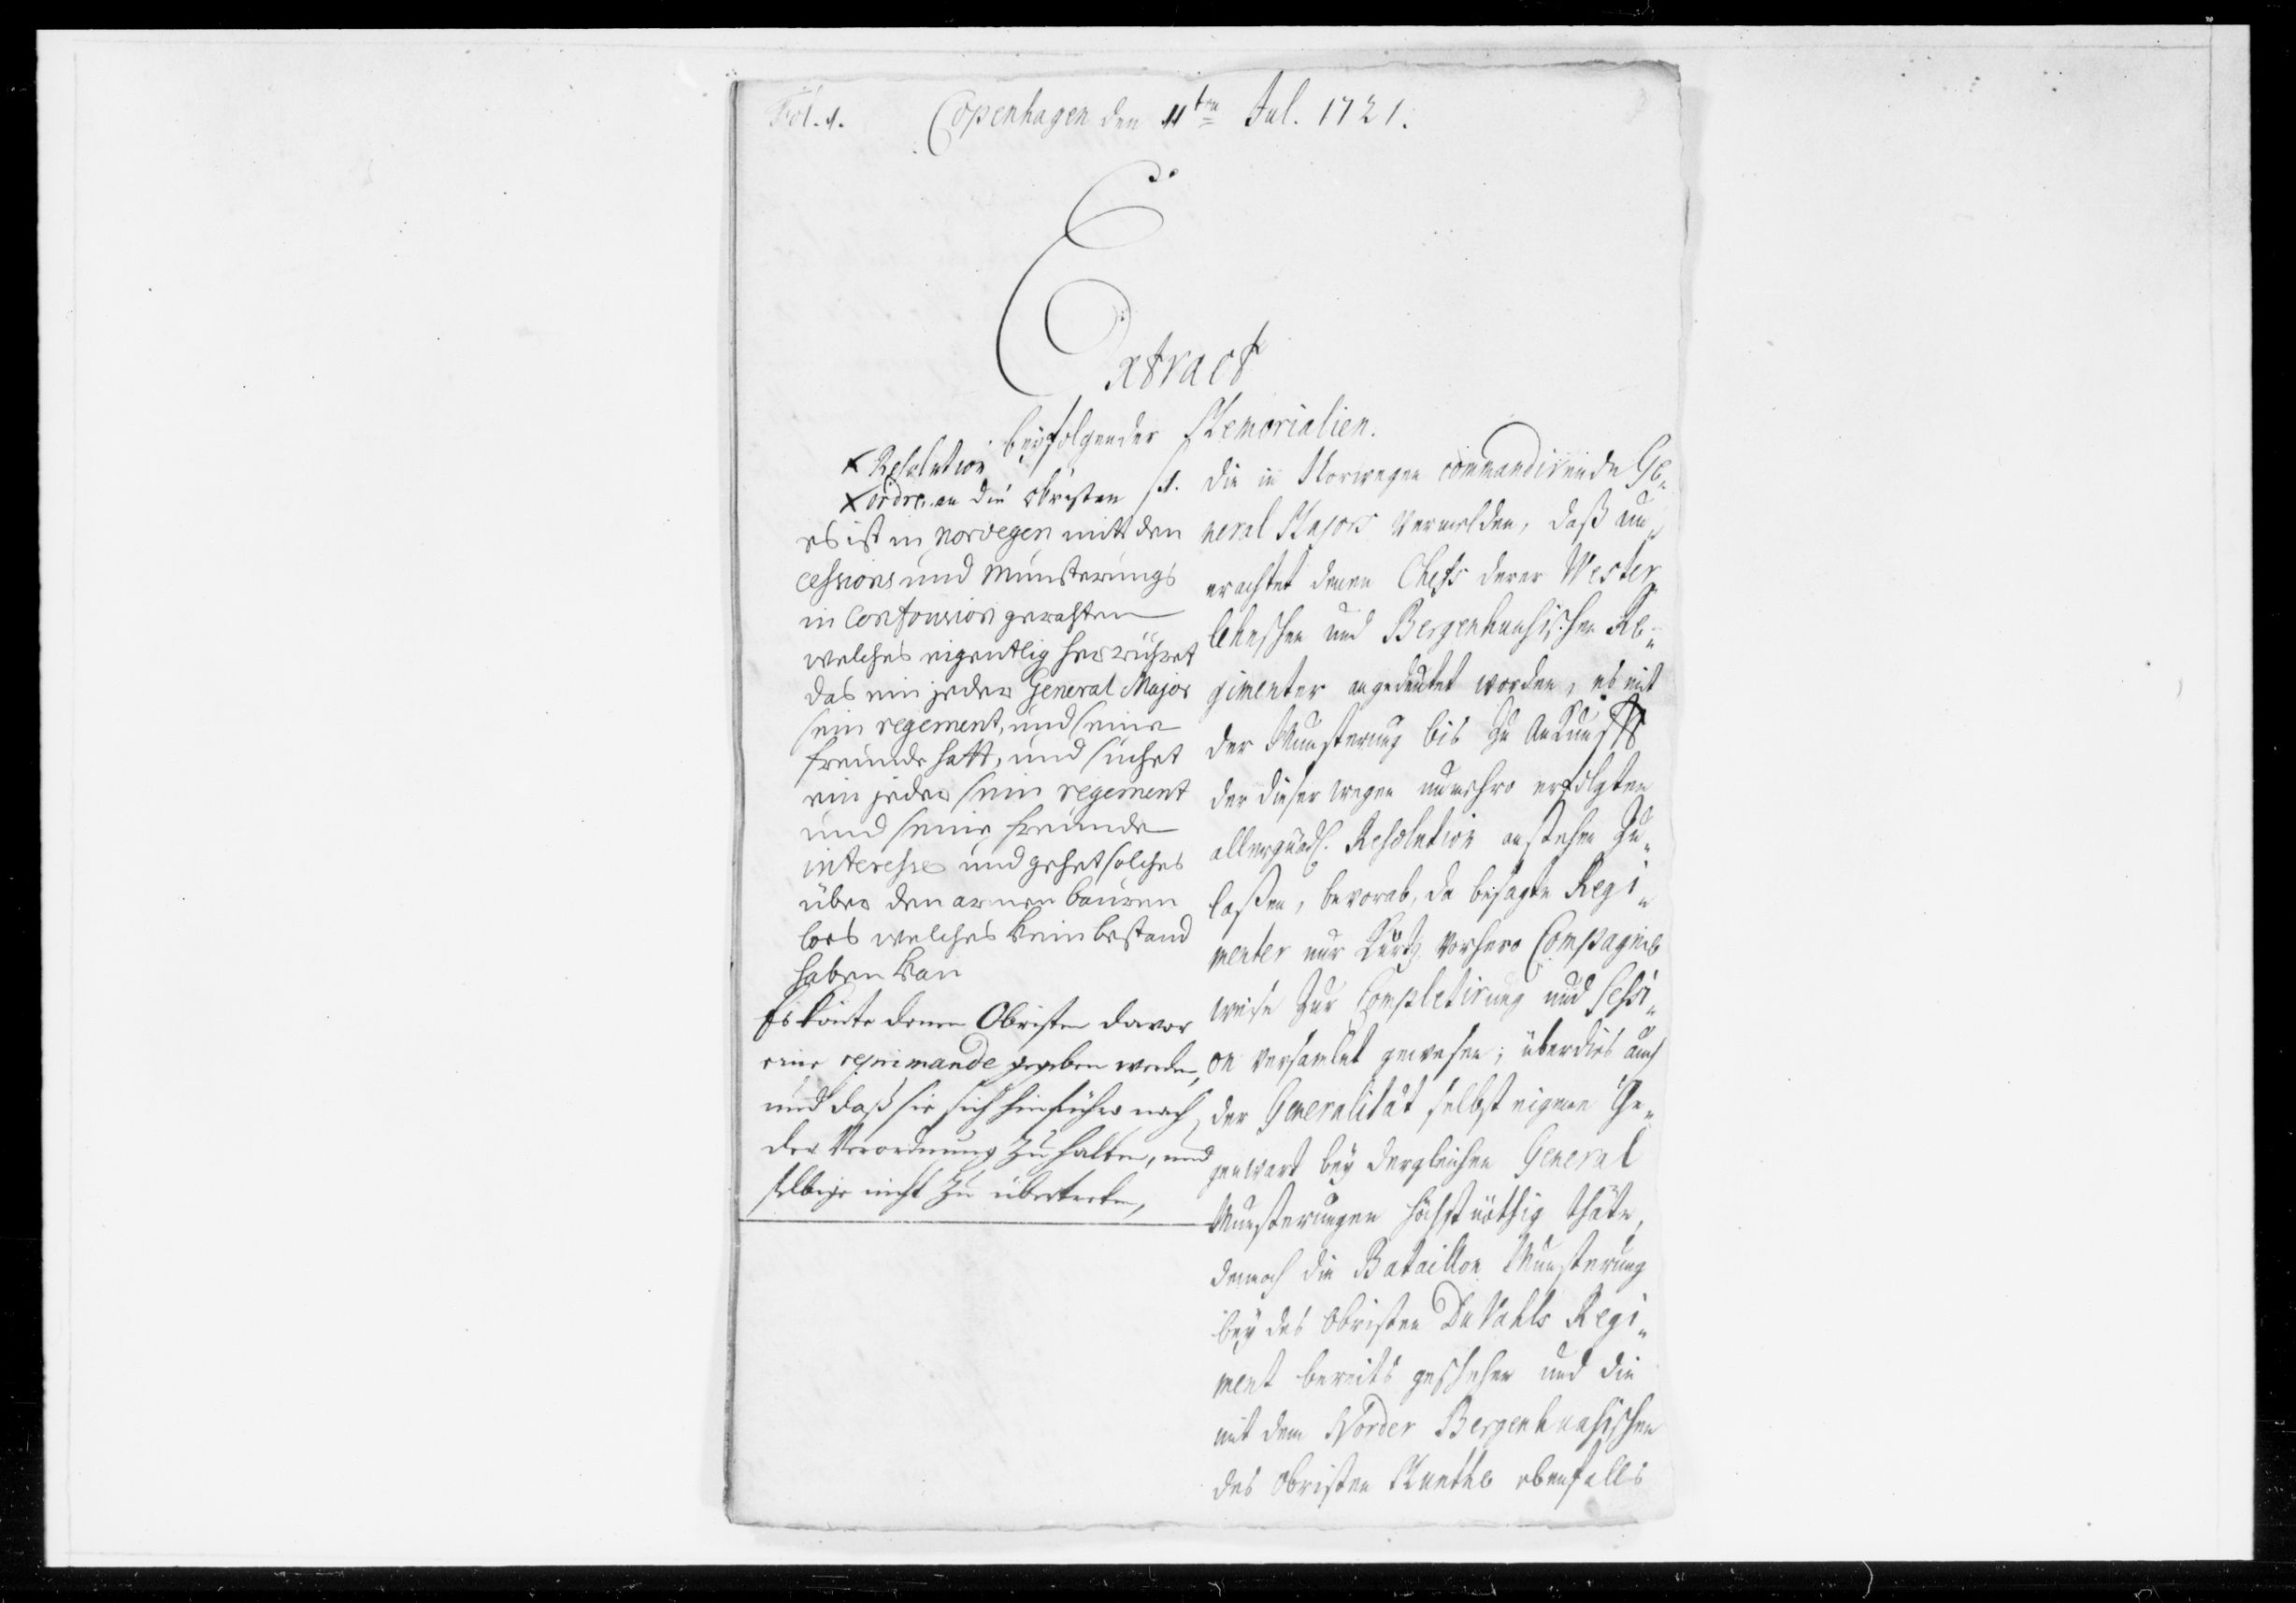 Fol. 1. Copenhagen den 11ten Jul. 1721.
Extract
beyfolgender Memorialien.
x Resolution
x ordre an die obristen
es ist in norvegen mitt den
cessions und münsterungs
in confousion gerahten
welches eigentlig her rühret
das ein jeder General Major
sein regement, und seine
freunde hatt, und suchet
ein jeder sein regement
und seine freunde
interesse und gehet solches
über den armen bauren
loes welches kein bestand
haben kan
Es könte denen Obristen davor
eine reprimande gegeben werden,
und daß sie sich hinführo nach
der Verordnung zu halten, und
selbige nicht zu überterten,
1. Die in Norwegen commandirende Ge„
neral Majors vermelden, daß un„
erachtet denen Chefs derer Wester
lehnschen und Bergenhuusischen Re„
gimenter angedeutet worden, es mit
der Munsterung bis zu Ankunfft
der dieser wegen nunmehro erfolgten
allergnädl. Resolution anstehen zu„
laßen, bevorab, da besagte Regi„
menter nur kurtz vorhero Compagnie
weise zur Completirung und Sessi„
on versamlet gewesen; überdies auch
der Generalität selbst eigene Ge„
genwart bey dergleichen General
Munsterungen höchstnöthig thäte,
dennoch die Bataillon Munsterung
bey des Obristen DuVahls Regi„
ment bereits geschehen und die
mit dem Norder Bergenhuusischen
des Obristen Munthe ebenfalls